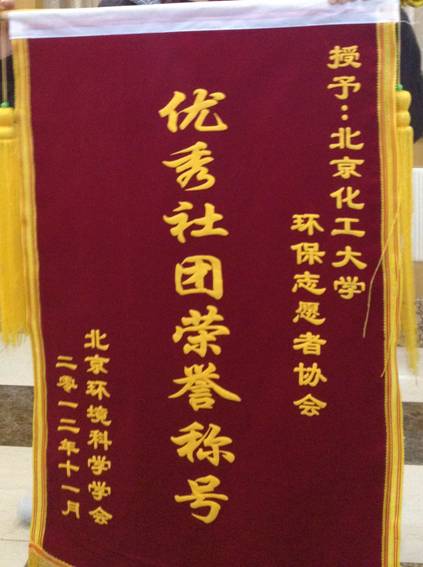 授予：北京化工大学
环保志愿者协会
优秀社团荣誉称号
北京环境科学学会
二零一二年十一月